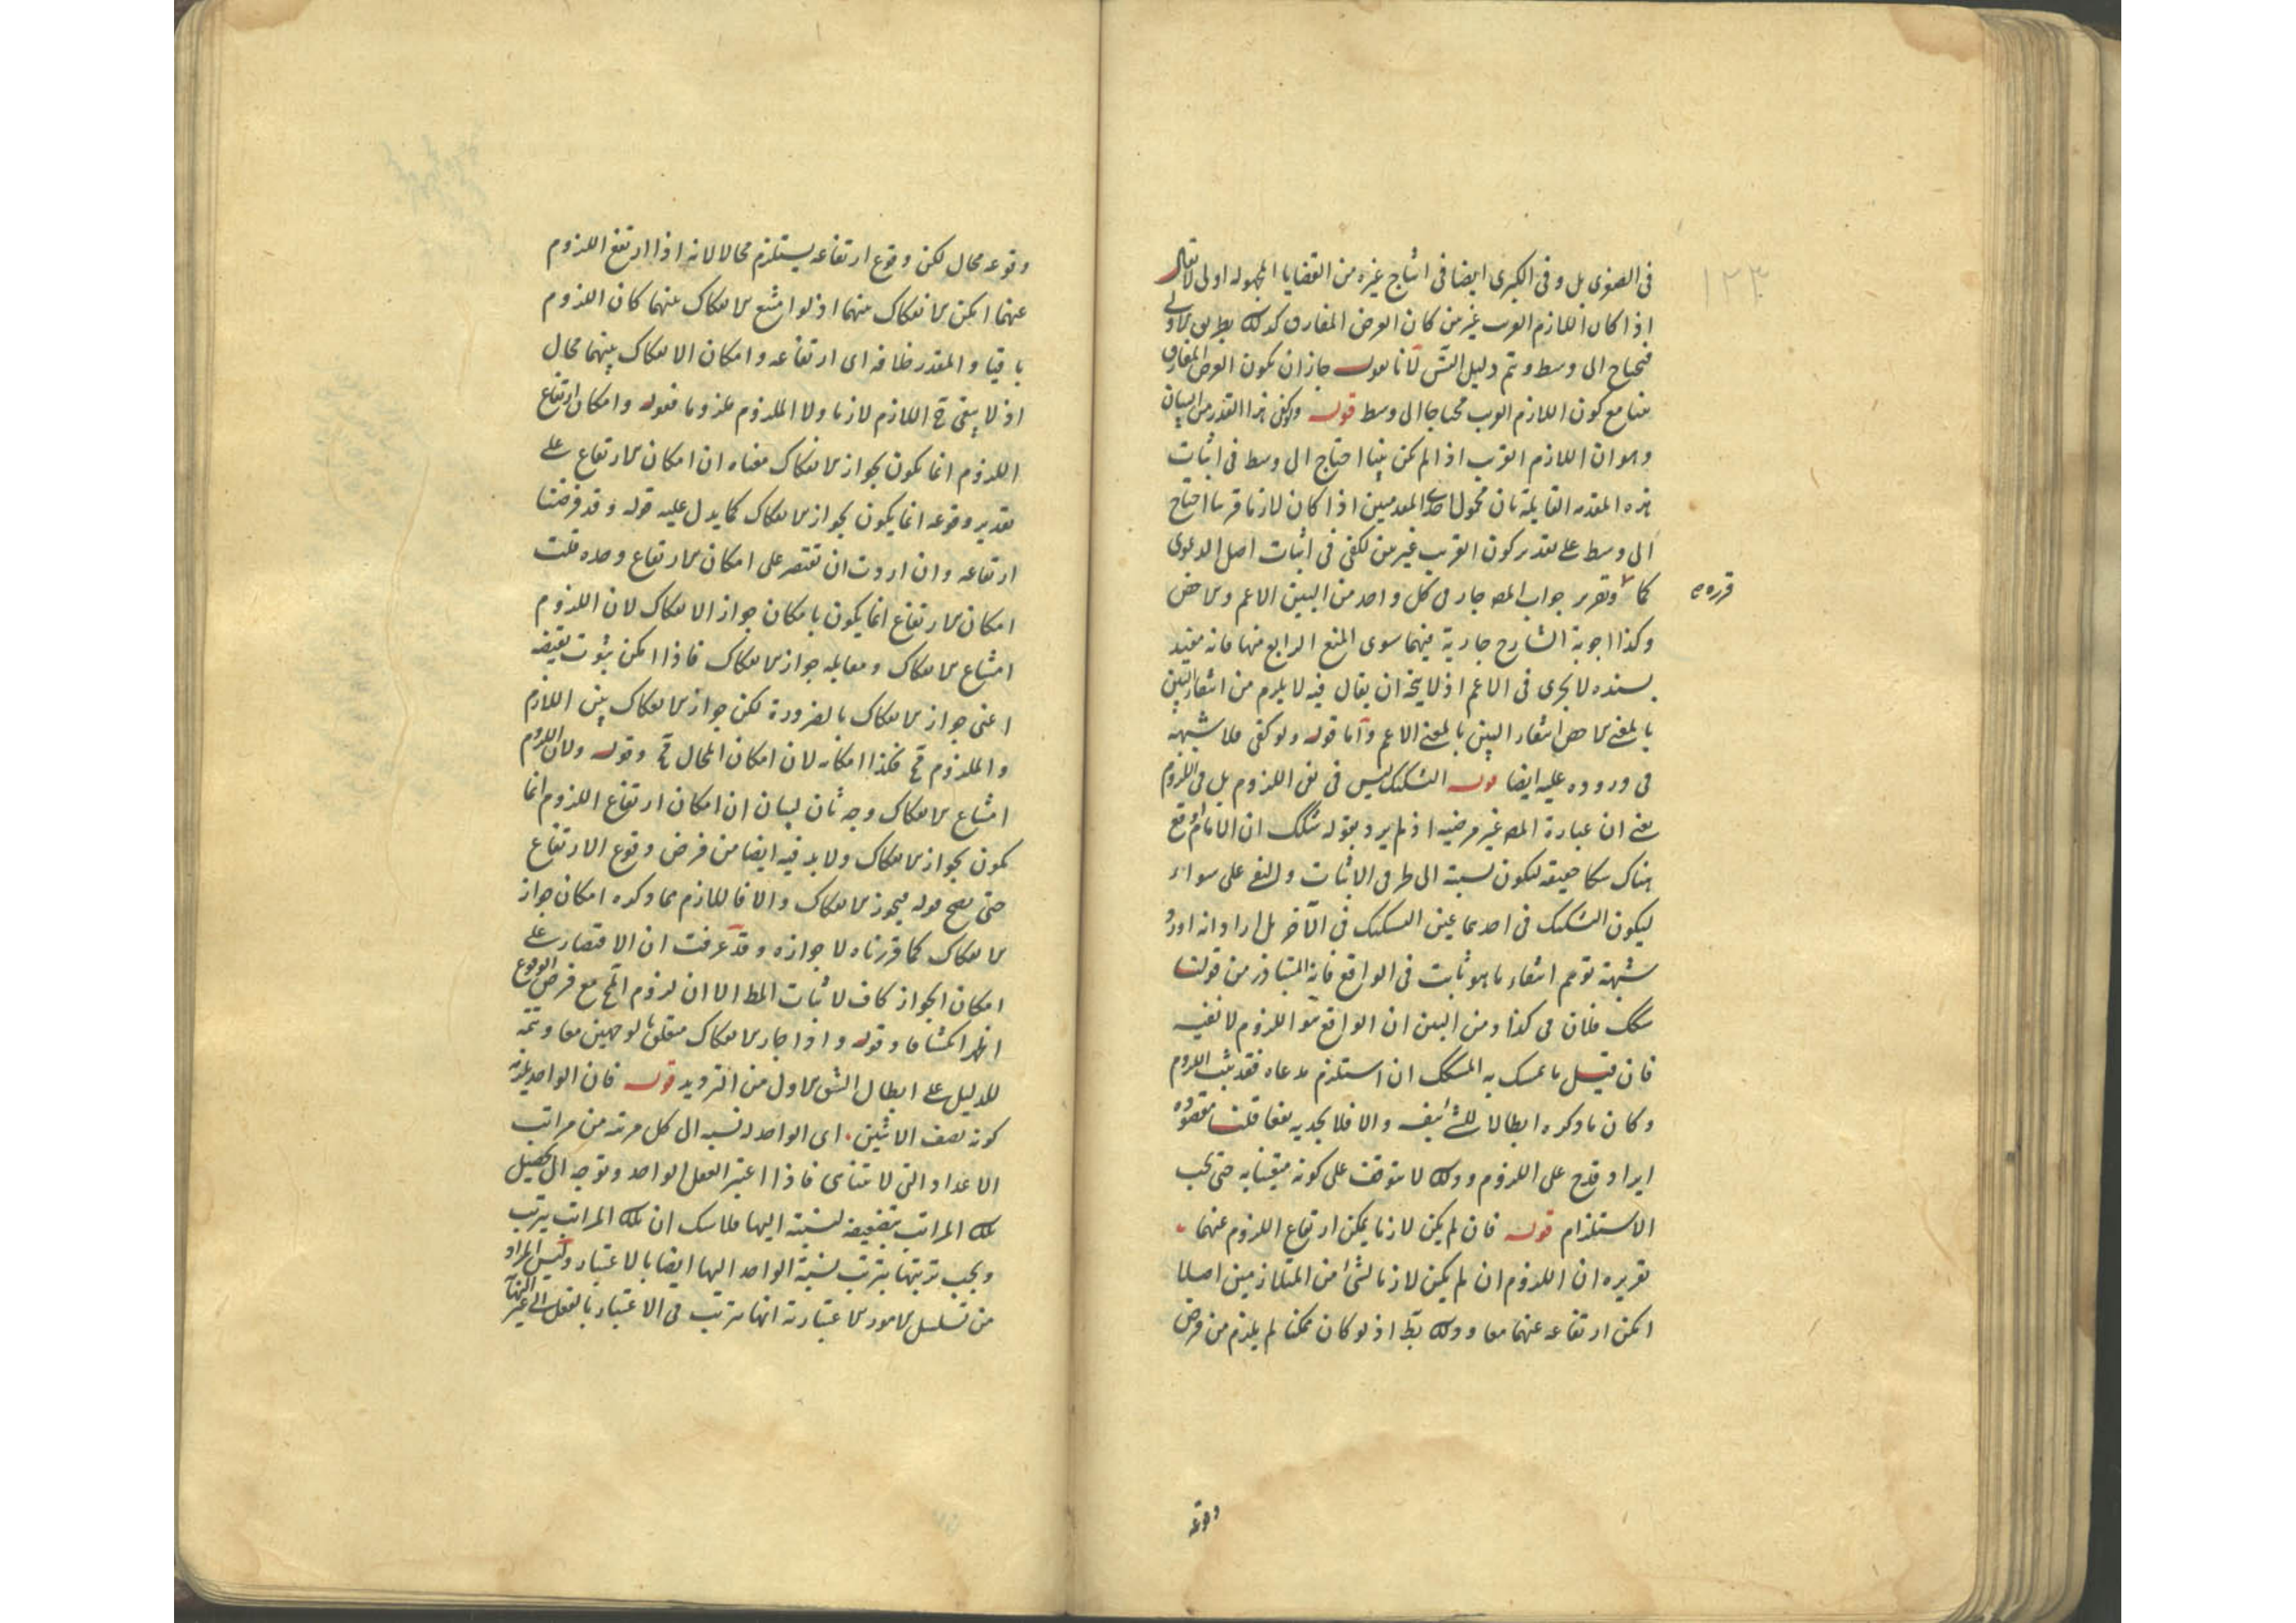 ١٢٣
فى الصغرى بل وفى الكبرى ايضا فى انتاج غيره من القضايا المجهولة اولى لا يقال
اذا كان اللازم القريب غير بين كان العرض المفارق كذلك بطريق الاولى
فيحتاج الى وسط وتم دليل الش لانا نقول جاز ان يكون العرض المفارق
بينا مع كون اللازم القريب محتاجا الى وسط قوله ويكفى هذا القدر من البيان
وهو ان اللازم القريب اذا لم يكن بينا احتاج الى وسط فى اثبات
هذه المقدمه القايلة بان محمول احدى المقدمتين اذا كان لازما قريبا احتاج
الى وسط على تقدير كون القريب غير بين لكفى فى اثبات اصل الدعوى
كما وتقرير جواب المص جار فى كل واحد من البين الاعم والاخص
قرره
وكذا اجوبة الشارح جارية فيهما سوى المنع الرابع منها فانه مقيد
بسنده لا يجرى فى الاعم اذ لا يتجه ان يقال فيه لا يلزم من انتفاء البين
بالمعنى الاخص انتفاء البين بالمعنى الاعم واما قوله ولو كفى فلا شبهة
فى وروده عليه ايضا قوله التشكيك ليس فى نفى اللزوم بل فى اللزوم
يعنى ان عبارة المص غير مرضيه اذ لم يرد بقوله شكك ان الامام اوقع
هناك شكا حقيقة ليكون نسبته الى طرفى الاثبات والنفى على سواء
ليكون التشكيك فى احدهما عين التشكيك فى الآخر بل اراد انه اورد
شبهة توهم انتفاء ما هو ثابت فى الواقع فانه المتبادر من قولنا
شكك فلان فى كذا ومن البين ان الواقع هو اللزوم لا نفيه
فان قيل ما تمسك به المشكك ان استلزم مدعاه فقد ثبت اللزوم
وكان ما ذكره ابطالا للشئ بنفسه والا فلا يجديه نفعا قلنا مقصوده
ايراد قدح على اللزوم وذلك لا يتوقف على كونه متيقنا به حتى يجب
الاستلزام قوله فان لم يكن لازما يمكن ارتفاع اللزوم عنهما
تقريره ان اللزوم ان لم يكن لازما لشئ من المتلازمين اصلا
امكن ارتفاعه عنهما معا وذلك بط اذ لو كان ممكنا لم يلزم من فرض
وقوعه
وقوعه محال لكن وقوع ارتفاعه يستلزم محالا لانه اذا ارتفع اللزوم
عنهما امكن الانفكاك بينهما اذ لو امتنع الانفكاك عنهما كان اللزوم
باقيا والمقدر خلافه اى ارتفاعه وامكان الانفكاك بينهما محال
اذ لا يبقى ح اللازم لازما ولا الملزوم ملزوما فقوله وامكان ارتفاع
اللزوم انما يكون بجواز الانفكاك معناه ان امكان الارتفاع على
تقدير وقوعه انما يكون بجواز الانفكاك كما يدل عليه قوله وقد فرضنا
ارتفاعه وان اردت ان تقتصر على امكان الارتفاع وحده قلت
امكان الارتفاع انما يكون بامكان جواز الانفكاك لان اللزوم
امتناع الانفكاك ومقابله جواز الانفكاك فاذا امكن ثبوت نقيضه
اعنى جواز الانفكاك بالضرورة لكن جواز الانفكاك بين اللازم
والملزوم مح فكذا امكانه لان امكان المحال مح وقوله ولان اللزوم
امتناع الانفكاك وجه ثان لبيان ان امكان ارتفاع اللزوم انما
يكون بجواز الانفكاك ولا بد فيه ايضا من فرض وقوع الارتفاع
حتى يصح قوله فيجوز الانفكاك والا فاللازم مما ذكره امكان جواز
الانفكاك كما قررناه لا جوازه وقد عرفت ان الاقتصار على
امكان الجواز كاف لاثبات المط الا ان لزوم المح مع فرض الوقوع
اظهر انكشافا وقوله واذا جاز الانفكاك متعلق بالوجهين معا وتتمة
للدليل على ابطال الشق الاول من الترديد قوله فان الواحد يلزمه
كونه نصف الاثنين اى الواحد له نسبة الى كل مرتبة من مراتب
الاعداد التى لا تتناهى فاذا اعتبر العقل الواحد وتوجه الى تحصيل
تلك المراتب بتضعيفه نسبته اليها فلا شك ان تلك المراتب يترتب
ويجب ترتبها بترتب نسبة الواحد اليها ايضا بالاعتبار وليس المراد
من تسلسل الامور الاعتبارية انها مترتبة فى الاعتبار بالفعل الى غير النهاية